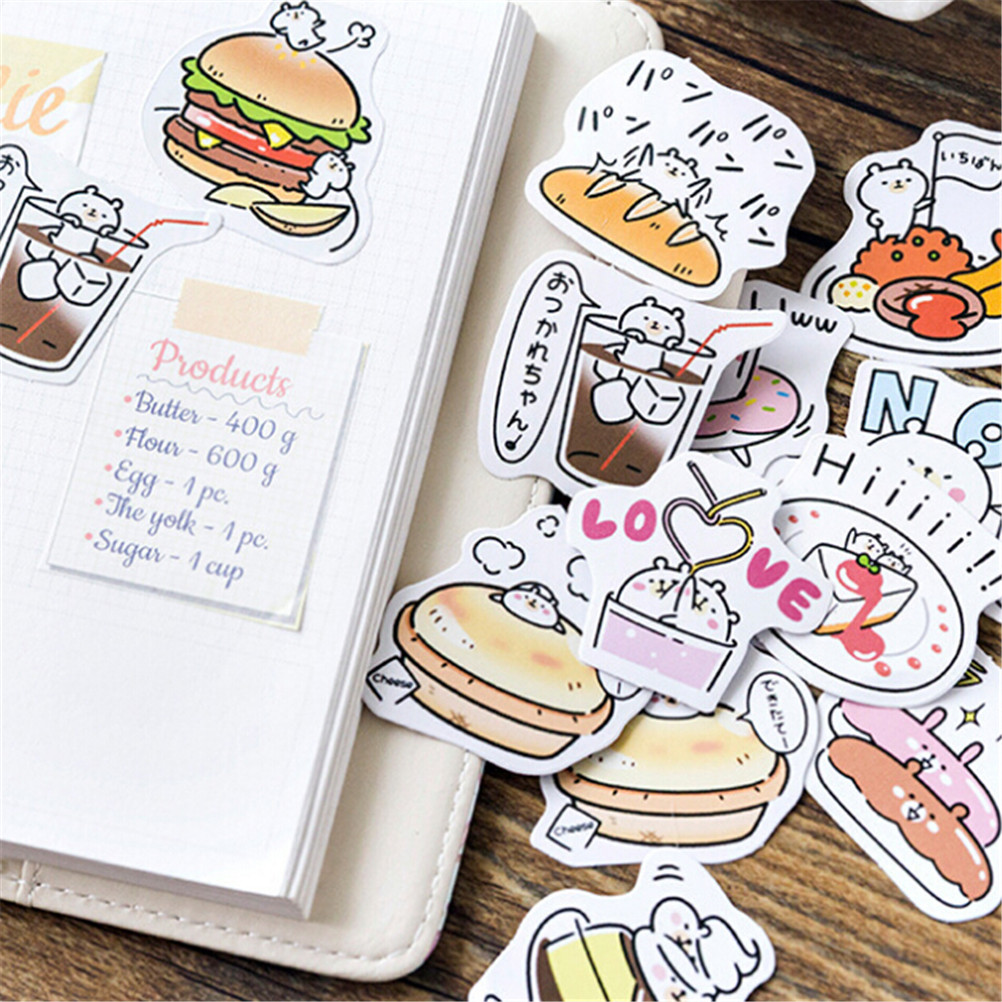 ie
おつ
Products
Butter - 400 g
Flour - 600 g
Egg - 1 pc.
The yolk - 1 pc.
Sugar - 1 cup
パン
パン
パン
パン
パン
パン
いちばん
おつかれちゃん♪
ww
NO
Hiiii!!
LOVE
Cheese
Cheese